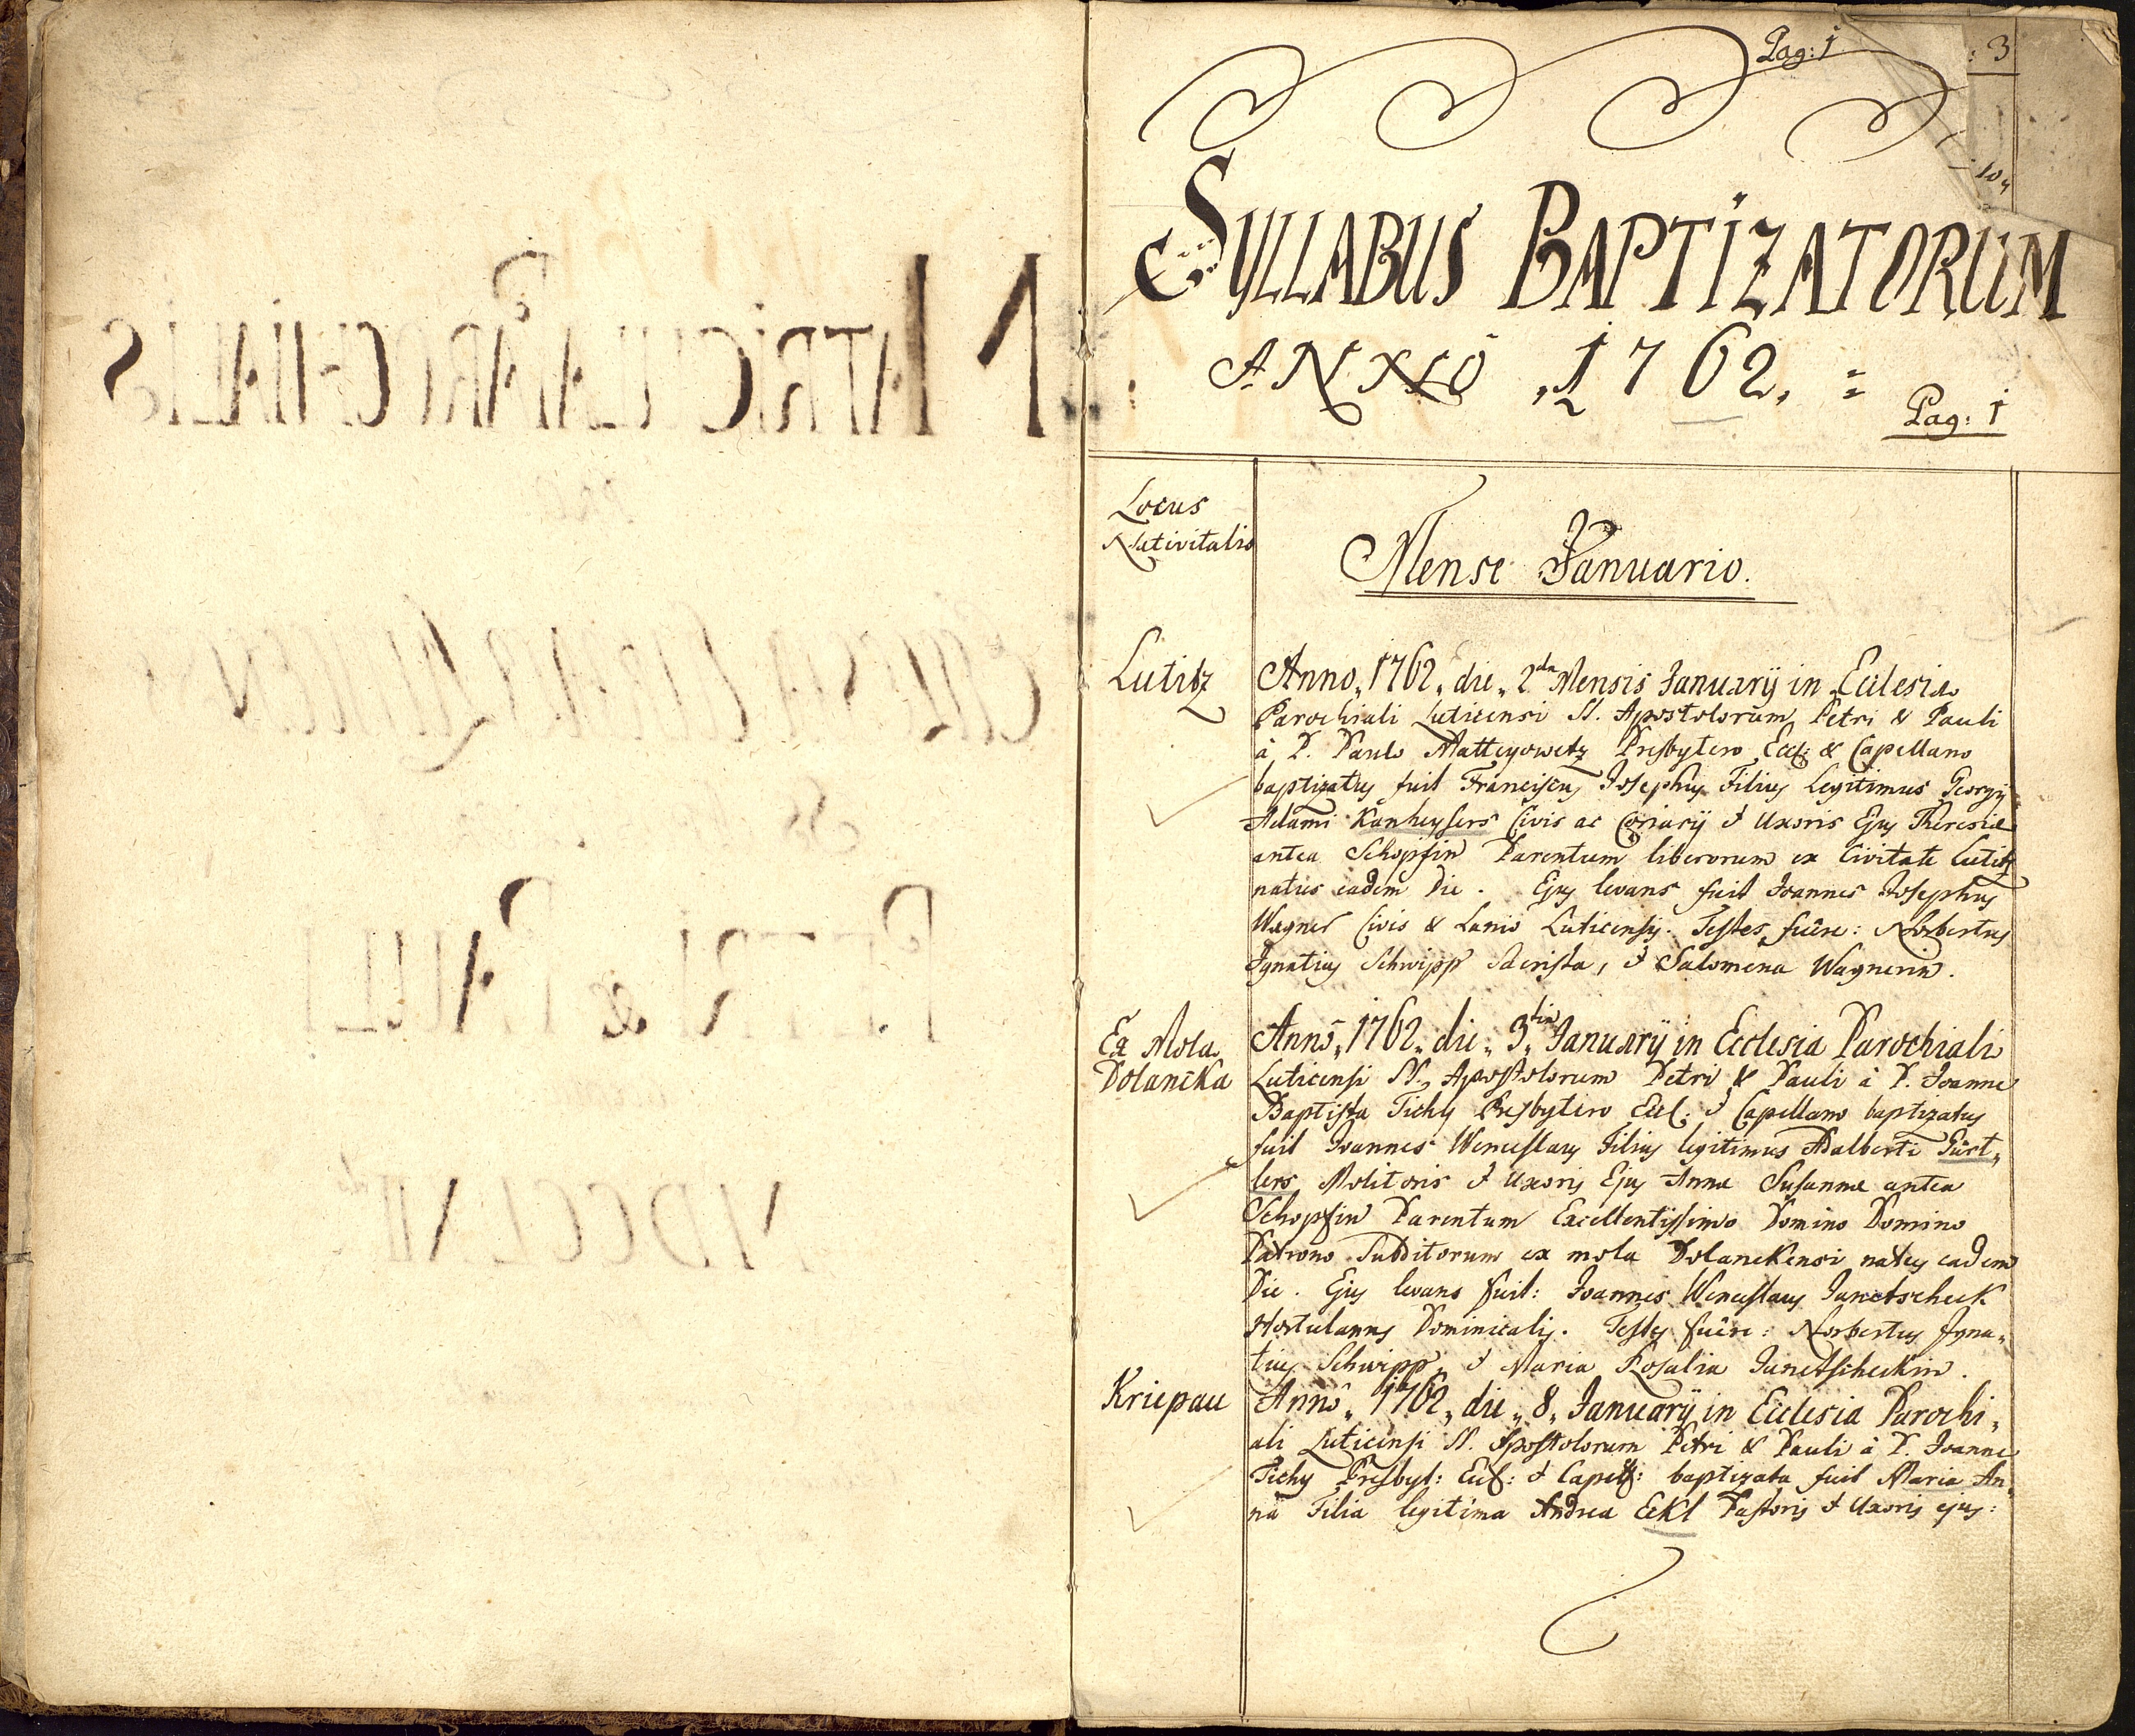 MATRICULA PAROCHIALIS
PETRI & PAULI
Pag: 1
: 3
SYLLABUS BAPTIZATORUM
ANNO 1762.
Pag: 1
Locus
Nativitatis
Mense Januario.
Lutitz
Anno, 1762, die, 2da Mensis Januarÿ in Ecclesia
Parochiali Luticensi SS. Apostolorum Petri & Pauli
à P. Paulo Matteyowetz Presbytero Eccl: & Capellano
baptizatus fuit Franciscus Josephus Filius Legitimus Georgÿ
Adami Kanheysers Civis ac Coriarÿ & Uxoris Ejus Theresiæ
antea Schopfin Parentum liberorum ex Civitate Lutitz
natus eadem Die. Ejus levans fuit Joannes Josephus
Wagner Civis & Lanio Luticensis. Testes fuêre: Norbertus
Ignatius Schwipp Sacrista, & Salomena Wagnerin.
Ex Mola
Dolancka
Anno, 1762, die, 3tia, Januarÿ in Ecclesia Parochiali
Luticensi SS. Apostolorum Petri & Pauli à P. Joanne
Baptista Tichy Presbytero Eccl: & Capellano baptizatus
fuit Joannes Wenceslaus Filius legitimus Adalberti Gürt,
lers Molitoris & Uxoris Ejus Annæ Susannæ antea
Schopfin Parentum Excellentissimo Domino Domino
Patrono Subditorum ex mola Dolanekensi natus eadem
Die. Ejus levans fuit: Joannes Wenceslaus Janetscheck
Hortulanus Dominicalis. Testes fuêre: Norbertus Igna,
tius Schwipp, & Maria Rosalia Janetscheckin.
Kriepau
Anno, 1762, die, 8, Januarÿ in Ecclesia Parochi,
ali Luticensi SS. Apostolorum Petri & Pauli à P. Joanne
Tichy Presbyt: Eccl: & Capell: baptizata fuit Maria An,
na Filia legitima Andrea Eckl Pastoris & Uxoris ejus: